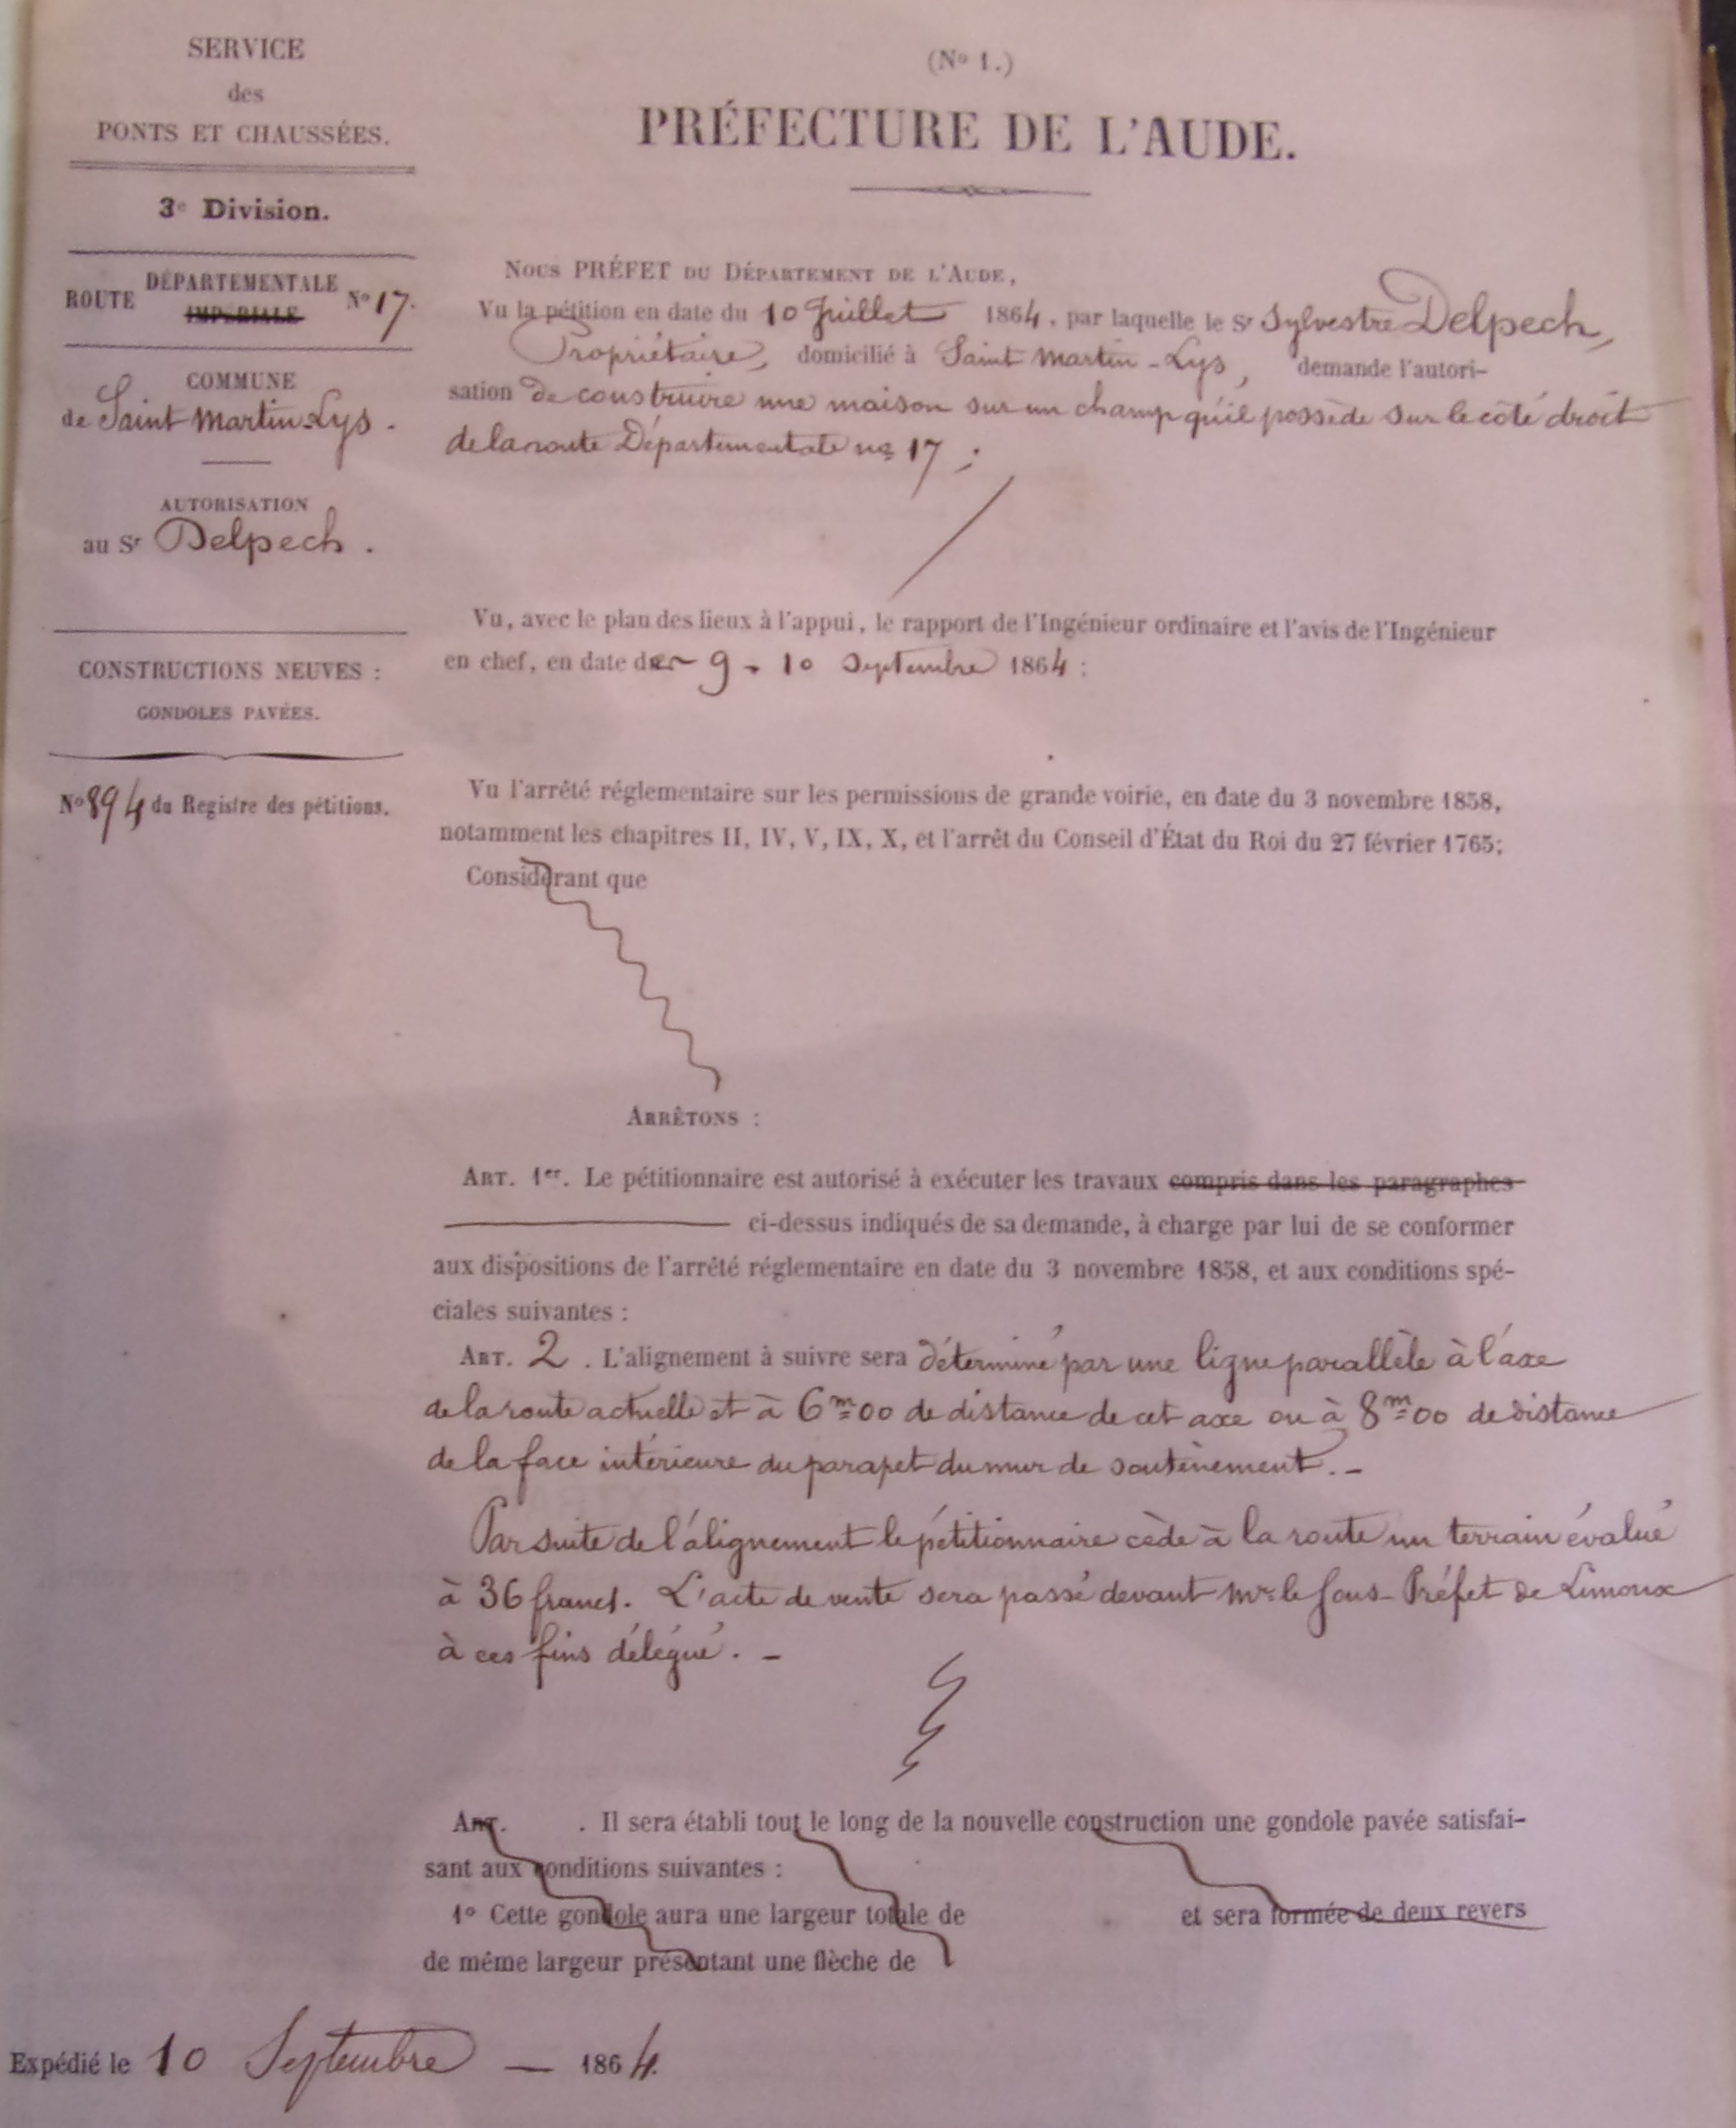 SERVICE
des
PONTS ET CHAUSSÉES.
3e Division.
ROUTE DÉPARTEMENTALE No 17.
IMPÉRIALE
COMMUNE
de Saint Martin-Lys.
AUTORISATION
au Sr Delpech.
CONSTRUCTIONS NEUVES :
GONDOLES PAVÉES.
No 894 du Registre des pétitions.
(No 1.)
PRÉFECTURE DE L'AUDE.
NOUS PRÉFET DU DÉPARTEMENT DE L'AUDE,
Vu la pétition en date du 10 Juillet 1864, par laquelle le Sr Sylvestre Delpech,
Propriétaire, domicilié à Saint Martin-Lys, demande l'autori-
sation de construire une maison sur un champ qu'il possède sur le côté droit
de la route Départementale no 17 ;
Vu, avec le plan des lieux à l'appui, le rapport de l'Ingénieur ordinaire et l'avis de l'Ingénieur
en chef, en date des 9 - 10 Septembre 1864 :
Vu l'arrêté réglementaire sur les permissions de grande voirie, en date du 3 novembre 1858,
notamment les chapitres II, IV, V, IX, X, et l'arrêt du Conseil d'État du Roi du 27 février 1765;
Considérant que
ARRÊTONS :
ART. 1er. Le pétitionnaire est autorisé à exécuter les travaux compris dans les paragraphes
ci-dessus indiqués de sa demande, à charge par lui de se conformer
aux dispositions de l'arrêté réglementaire en date du 3 novembre 1858, et aux conditions spé-
ciales suivantes :
ART. 2. L'alignement à suivre sera déterminé par une ligne parallèle à l'axe
de la route actuelle et à 6m00 de distance de cet axe ou à 8m00 de distance
de la face intérieure du parapet du mur de soutènement. -
Par suite de l'alignement le pétitionnaire cède à la route un terrain évalué
à 36 francs. L'acte de vente sera passé devant Mr le Sous-Préfet de Limoux
à ces fins délégué. -
ART. . Il sera établi tout le long de la nouvelle construction une gondole pavée satisfai-
sant aux conditions suivantes :
1o Cette gondole aura une largeur totale de et sera formée de deux revers
de même largeur présentant une flèche de
Expédié le 10 Septembre — 1864.